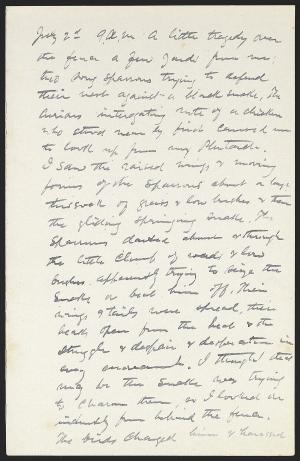 July 2d 9 A.M. A little tragedy over
the fence a few yards from me:
two song sparrows trying to defend
their nest against a black snake. The
curious interrogating note of a chicken
who stood near by first caused me
to look up from my Plutarch.
I saw the raised wings & moving
forms of the sparrows about a low
of grass & low bushes & then
the gliding springing snake. The
sparrows darted about & through
the little clump of weeds & low
bushes apparently trying to seize the
snake or beat him off. Their
wings & tails were spread, their
beaks open from the heat & the
struggle & despair & desperation in
every movement. I thought that
may be the snake was trying
to charm them, so I looked on
intently from behind the fence.
The birds charged him & harassed